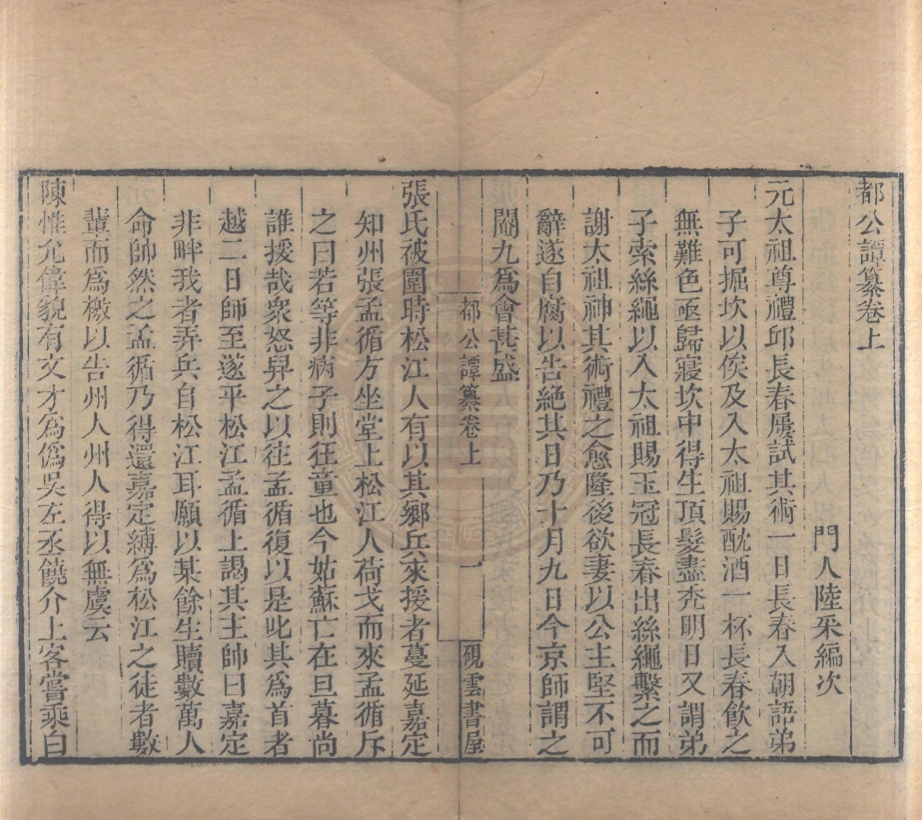 都公譚纂卷上
門人陸采編次
元太祖尊禮邱長春屢試其術一日長春入朝語弟
子可掘坎以俟及入太祖賜酖酒一杯長春飲之
無難色亟歸寢坎中得生頂髮盡禿明日又謂弟
子索絲繩以入太祖賜玉冠長春出絲繩繫之而
謝太祖神其術禮之愈隆後欲妻以公主堅不可
辭遂自腐以告絕其日乃十月九日今京師謂之
閹九爲會甚盛
都公譚纂卷上 一 硯雲書屋
張氏被圍時松江人有以其鄉兵來援者蔓延嘉定
知州張孟循方坐堂上松江人荷戈而來孟循斥
之曰若等非病子則狂童也今姑蘇亡在旦暮尚
誰援哉衆怒舁之以往孟循復以是叱其爲首者
越二日師至遂平松江孟循上謁其主帥曰嘉定
非畔我者弄兵自松江耳願以某餘生贖數萬人
命帥然之孟循乃得還嘉定縛爲松江之徒者數
輩而爲檄以告州人州人得以無虞云
陳惟允偉貌有文才爲僞吳左丞饒介上客嘗乘白